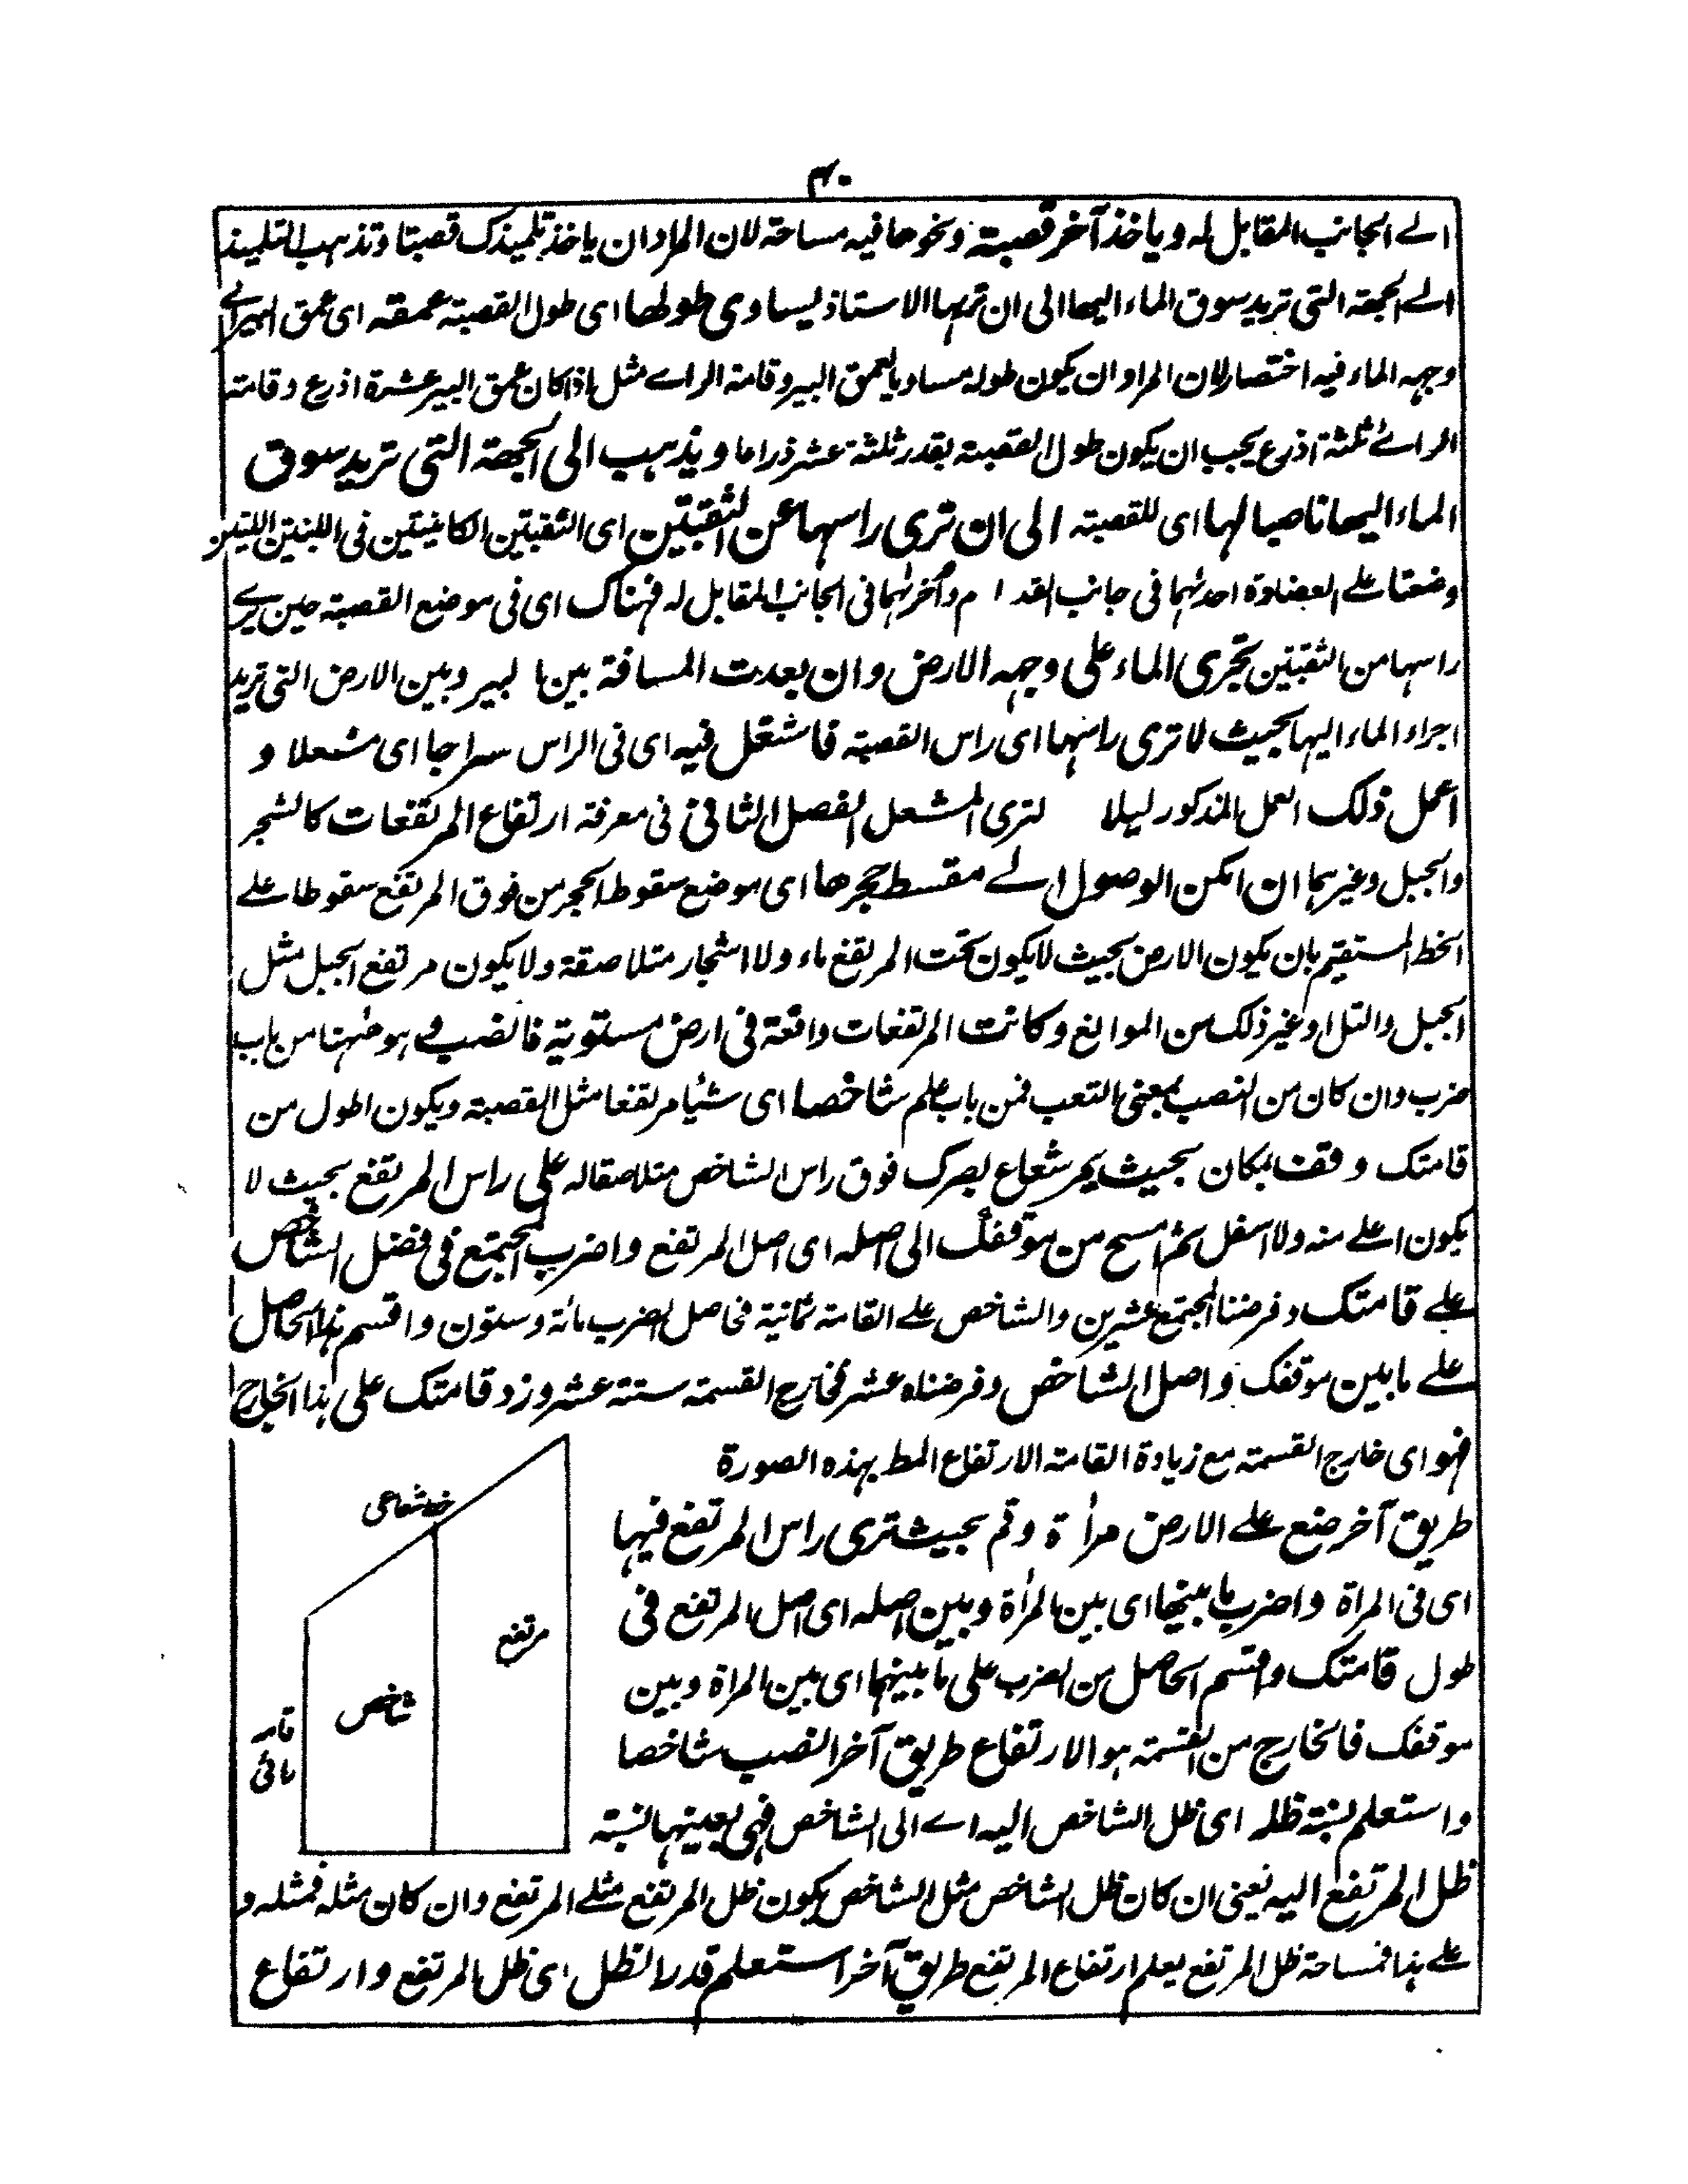 ۴۰
الے الجانب المقابل له و ياخذ آخر قصبة ونحوها فيه مساحة لان المراد ان ياخذ تلميذك قصبتا و تذهب التلميذ
الے الجهة التى تريد سوق الماء اليها الى ان تريها الاستاذ ليساوى طولها اى طول القصبة عمقه اى عمق البير الے
وجه الماء فيه اختصار لان المراد ان يكون طوله مساويا لعمق البير و قامة الراے مثل اذا كان عمق البير عشرة اذرع و قامته
الرائے ثلثة اذرع يجب ان يكون طول القصبة بقدر ثلثة عشر ذراعا و يذهب الى الجهة التى تريد سوق
الماء اليها ناصبا لها اى للقصبة الى ان ترى راسها عن الثقبتين اى الثقبتين الكائنتين فى اللبنتين اللتين
وضعتا علے العضادة احدٰهما فى جانب القدا م و اُخرٰهما فى الجانب المقابل له فهناك اى فى موضع القصبة حين يرے
راسها من الثقبتين تجرى الماء على وجه الارض و ان بعدت المسافة بين ا لبير و بين الارض التى تريد
اجراء الماء اليها بحيث لا ترى راسها اى راس القصبة فاشتغل فيه اى فى الراس سراجا اى مشعلا و
اعمل ذلك العمل المذكور ليلا لترى المشعل الفصل الثانى فى معرفة ارتفاع المرتفعات كالشجر
والجبل وغيرهما ان امكن الوصول الے مقسط حجرها اى موضع سقوط الحجر من فوق المرتفع سقوطا علے
الخط المستقيم بان يكون الارض بحيث لا يكون تحت المرتفع ماء ولا اشجار متلاصقة ولا يكون مرتفع الجبل مثل
الجبل والتل او غير ذلك من الموانع و كانت المرتفعات واقعة فى ارض مستوية فانصب و هو ههنا من باب
ضرب و ان كان من النصب بمعنى التعب فمن باب علم شاخصا اى شيئا مرتفعا مثل القصبة ويكون اطول من
قامتك و قف بمكان بحيث يمر شعاع بصرك فوق راس الشاخص متلاصقا له على راس المرتفع بحيث لا
يكون اعلے منه ولا اسفل ثم امسح من موقفك الى اصله اى اصل المرتفع و اضرب المجتمع فى فضل الشاخص
علے قامتك و فرضنا المجتمع عشرين والشاخص علے القامة ثمانية فحاصل الضرب مائة وستون و اقسم هذا الحاصل
علے ما بين موقفك و اصل الشاخص و فرضناه عشر فخارج القسمة ستة عشر و زد قامتك على هذا الخارج
فهو اى خارج القسمة مع زيادة القامة الارتفاع المط بهذه الصورة
طريق آخر ضع علے الارض مراٰة و قم بحيث ترى راس المرتفع فيها
اى فى المراة و اضرب ما بينها اى بين المراٰة و بين اصله اى اصل المرتفع فى
طول قامتك و اقسم الحاصل من الضرب على ما بينهما اى بين المراة و بين
موقفك فالخارج من القسمة هو الارتفاع طريق آخر انصب شاخصا
و استعلم نسبة ظله اى ظل الشاخص اليه اے الى الشاخص فهى بعينها نسبة
ظل المرتفع اليه يعنى ان كان ظل الشاخص مثل الشاخص يكون ظل المرتفع مثلے المرتفع و ان كان مثله فمثله و
علے هذا فمساحة ظل المرتفع يعلم ارتفاع المرتفع طريق آخر استعلم قدر الظل اى ظل المرتفع و ارتفاع
خط شعاعى
مرتفع
شاخص
قامة
رائى